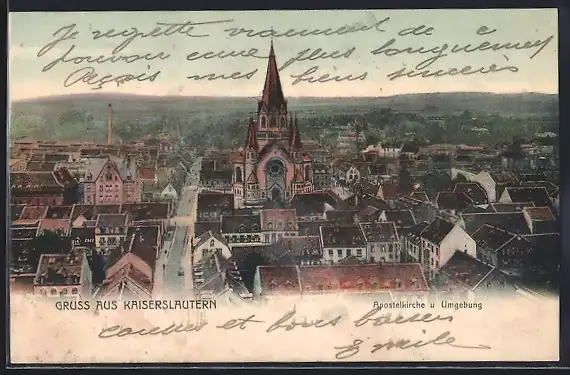 Je regrette vraiment de
pouvoir longuement
Reçois mes biens sincères
GRUSS AUS KAISERSLAUTERN
Apostelkirche u Umgebung
et bons baisers
Emile